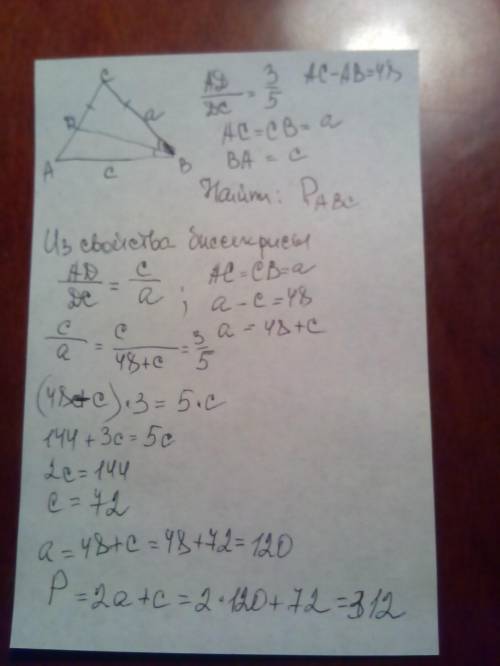 C
D
a
A
c
B
AD/DC = 3/5 AC-AB=48
AC=CB=a
BA = c
Найти: P_ABC
Из свойства биссектрисы
AD/DC = c/a ; AC=CB=a
a-c=48
c/a = c/48+c = 3/5 a=48+c
(48+c)·3=5·c
144+3c=5c
2c=144
c=72
a=48+c=48+72=120
P=2a+c=2·120+72=312